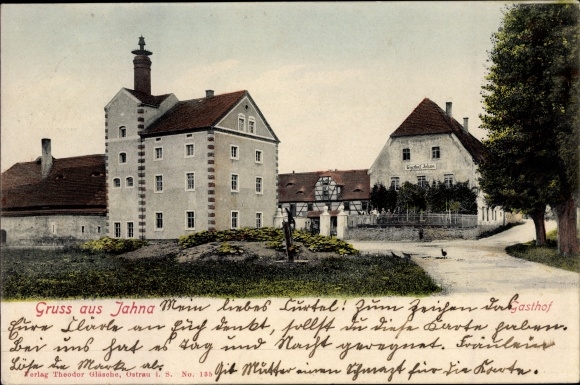 Gasthof Jahna
Gruss aus Jahna Mein liebes Curtel! Zum Zeichen daß
Gasthof
Eure Clärle an Euch denkt, sollst du diese Karte haben.
Bei uns hat es Tag und Nacht geregnet. Fräulein
Löse die Marke ab. Gib Mutter einen Schmatz für die Karte.
Verlag Theodor Gläsche, Ostrau i. S. No. 135